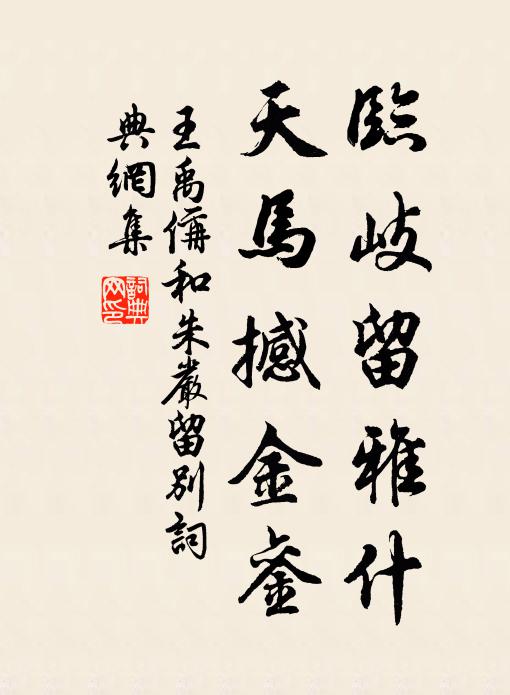 臨歧留雅什
天馬撼金銮
王禹偁和朱嚴留別詞
典網集
詞典
网印